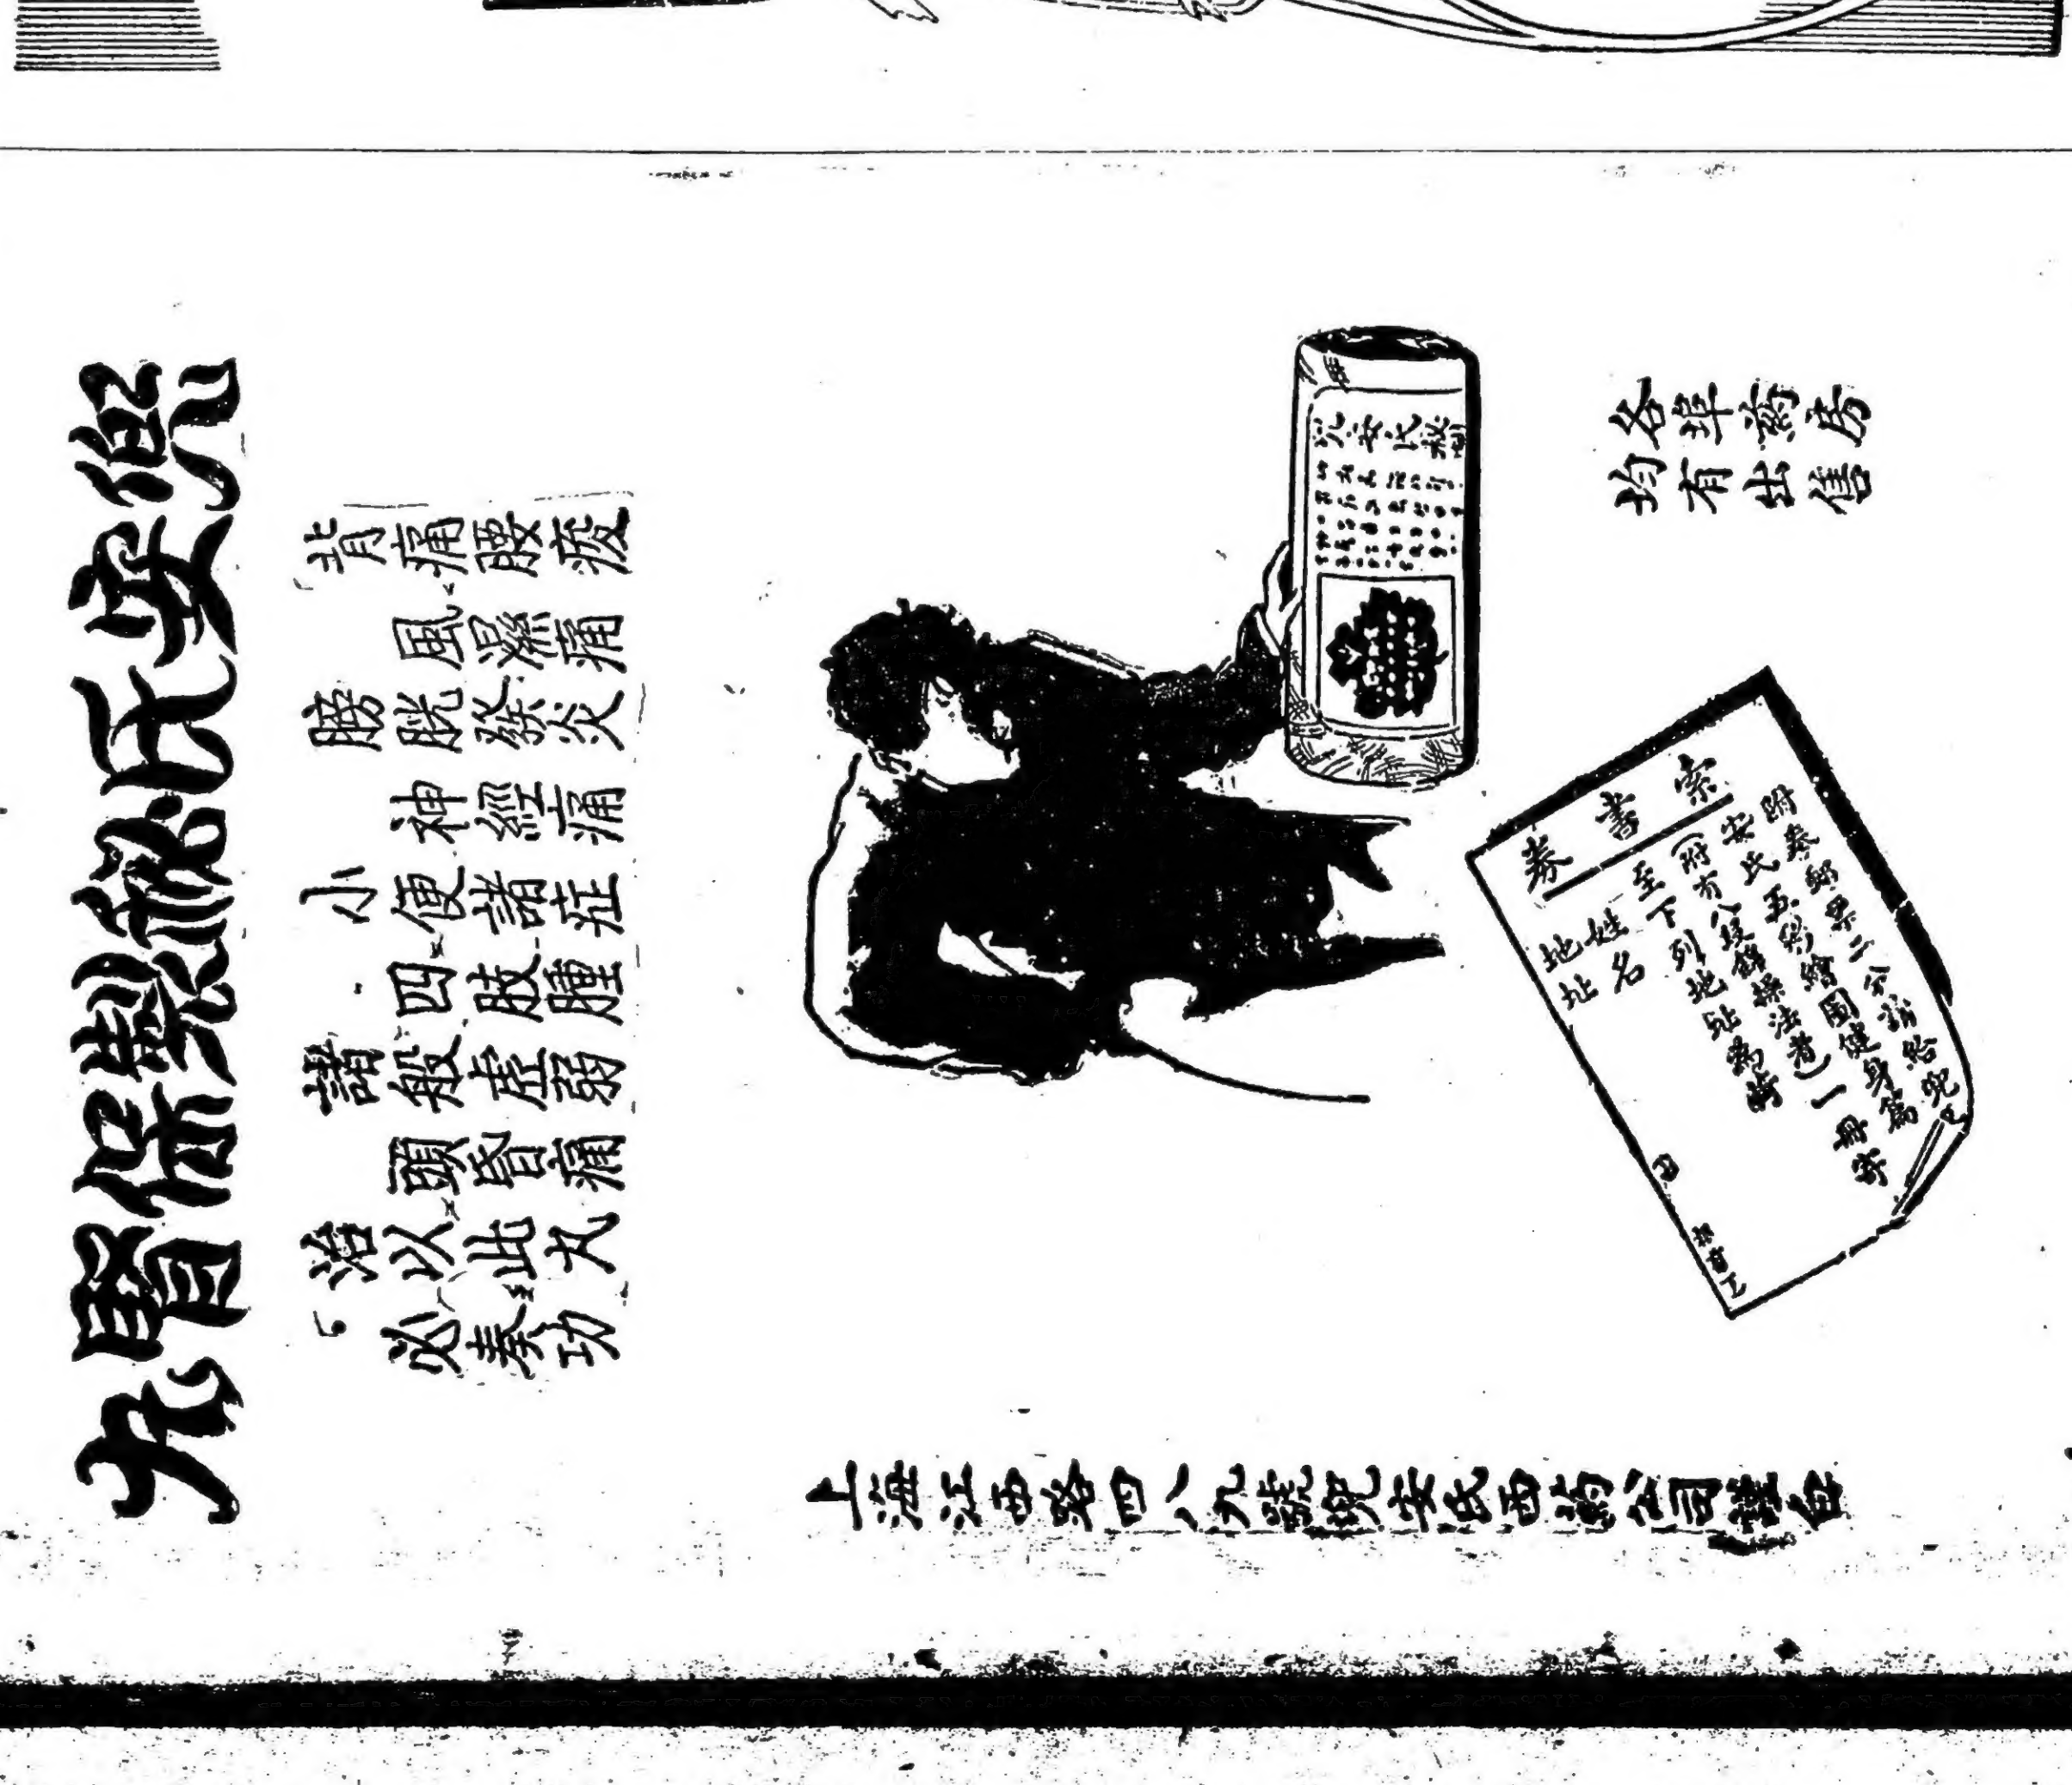 兜安氏秘製保腎丸
背痛腰痠
風濕痛
膀胱發炎
神經痛
小便諸症
四肢腫
諸般虛弱
頭昏痛
治以此丸
必奏功
各埠葯房
均有出售
兜安氏秘製
索書券
附奉郵票二分請給兜
安氏五彩繪圖健身篇
(附有八段錦操法者)一冊寄
至下列地址為荷
姓名
地址
上海江西路四八九號兜安氏西葯公司謹白